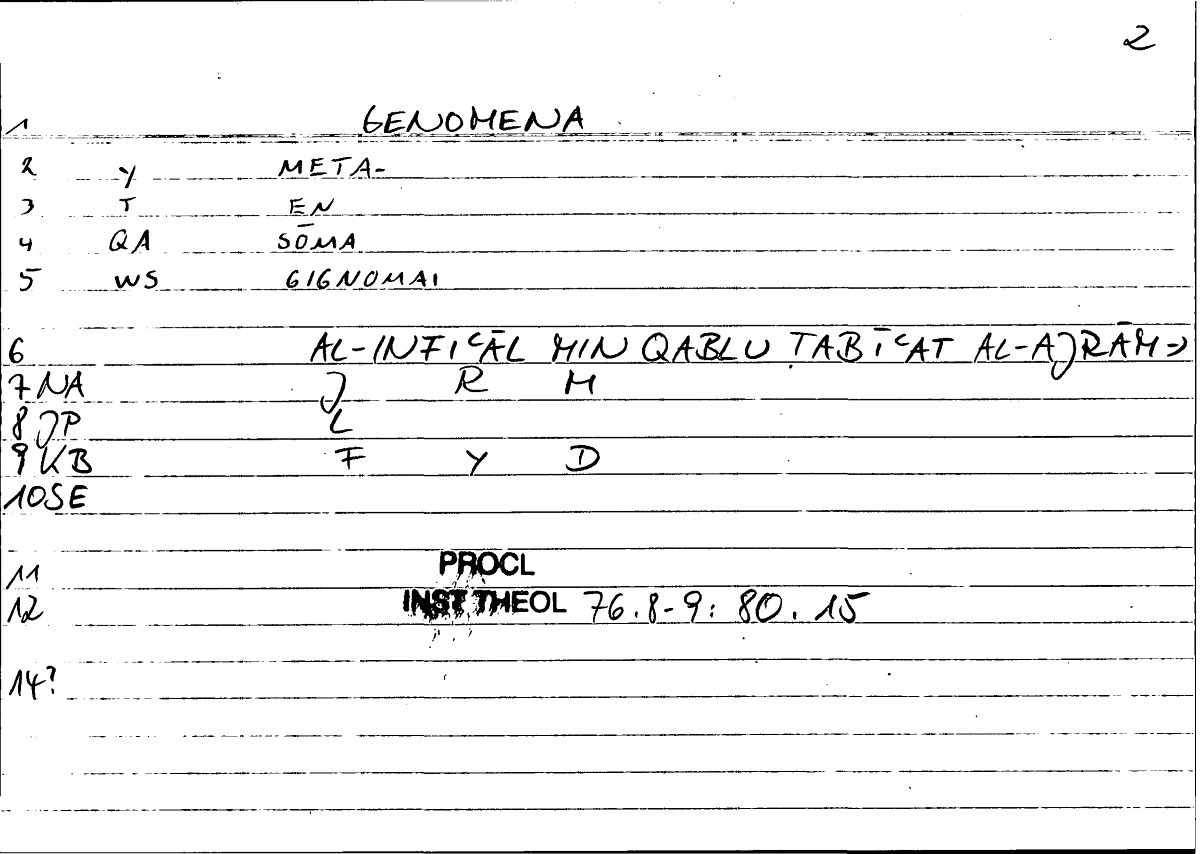 2
1 GENOMENA
2 Y META-
3 T EN
4 QA SŌMA
5 WS GIGNOMAI
6 AL-INFIʿĀL MIN QABLU ṬABĪʿAT AL-AJRĀM->
7 NA J R M
8 JP L
9 KB F Y D
10 SE
11 PROCL
12 INST THEOL 76.8-9: 80.15
14?